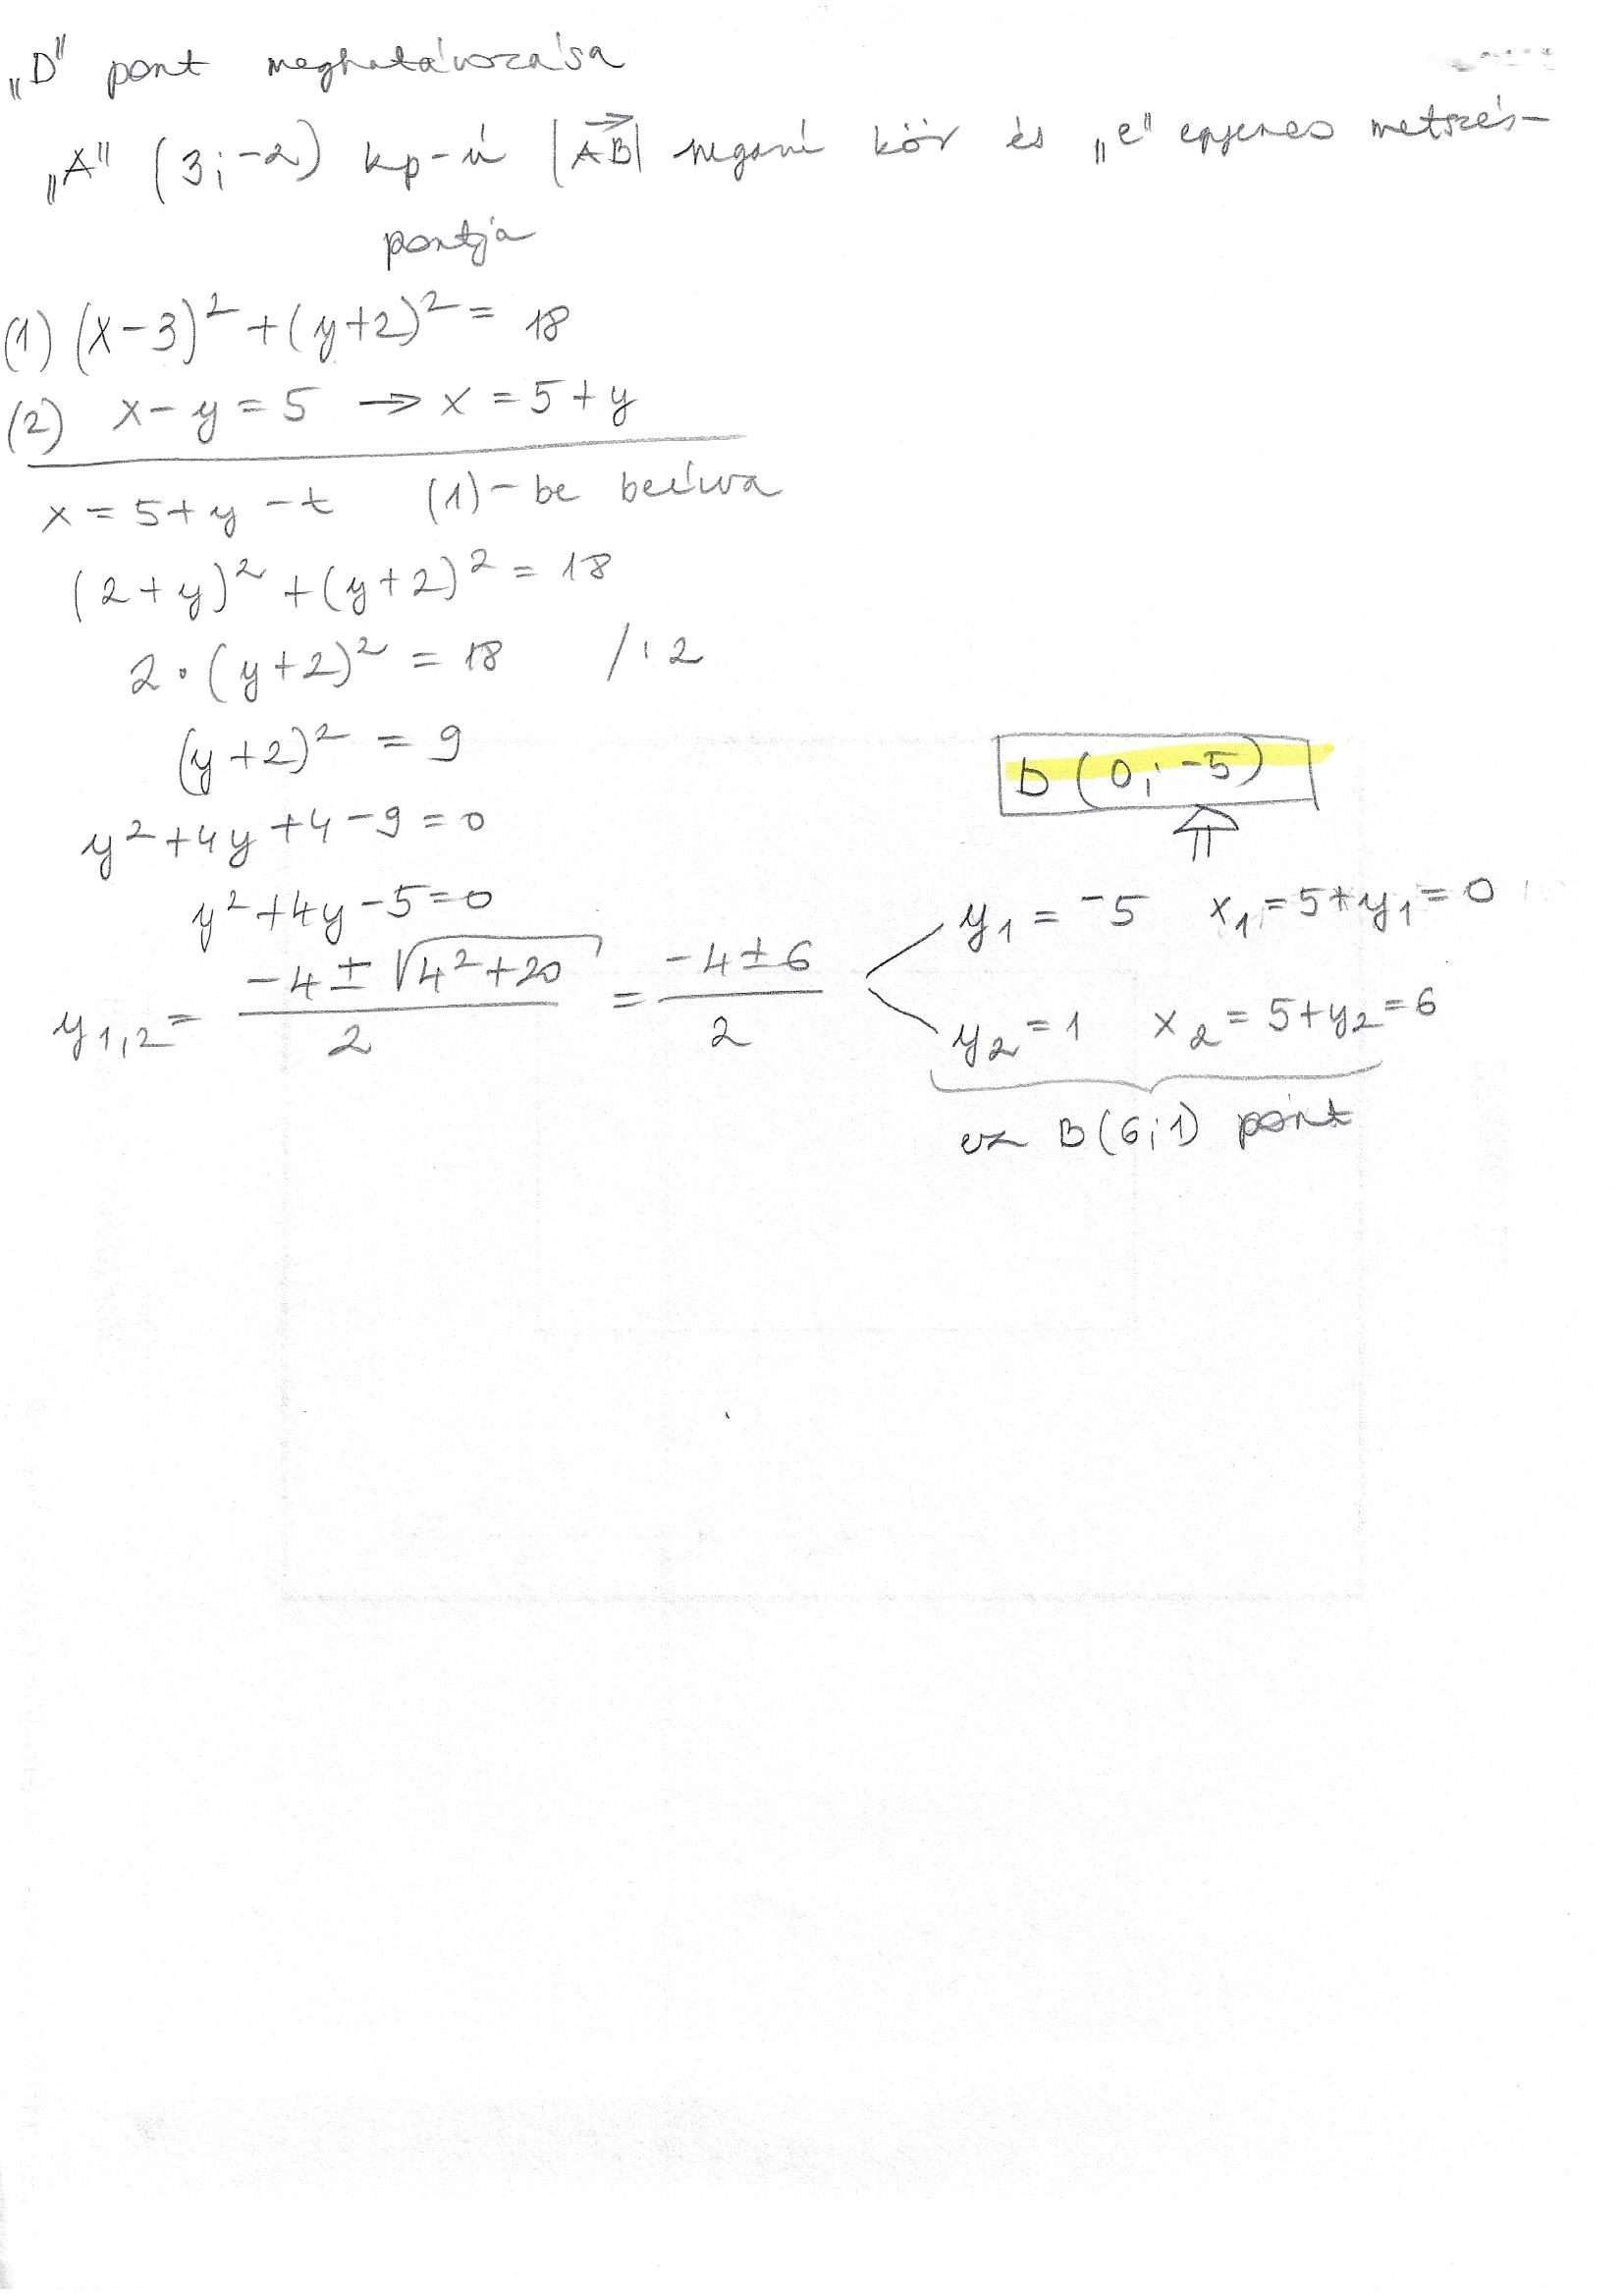 „D" pont meghatározása
„A" (3; -2) kp-ú |AB| sugarú kör és „e" egyenes metszés-
pontja
(1) (x-3)² + (y+2)² = 18
(2) x - y = 5 → x = 5 + y
x = 5 + y - t (1) - be beírva
(2 + y)² + (y+2)² = 18
2 · (y+2)² = 18 / : 2
(y+2)² = 9
y² + 4y + 4 - 9 = 0
y² + 4y - 5 = 0
D (0; -5)
y₁,₂ = (-4 ± √(4² + 20)) / 2 = (-4 ± 6) / 2
y₁ = -5 x₁ = 5 + y₁ = 0
y₂ = 1 x₂ = 5 + y₂ = 6
ez B(6; 1) pont